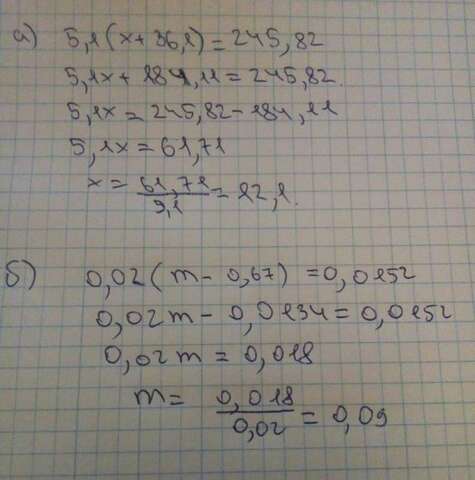 а) 5,1(x+36,1)=245,82
5,1x+184,11=245,82.
5,1x=245,82-184,11
5,1x=61,71
x=61,71/5,1=12,1.
б) 0,02(m-0,67)=0,0152
0,02m-0,0134=0,0152
0,02m=0,018
m=0,018/0,02=0,09